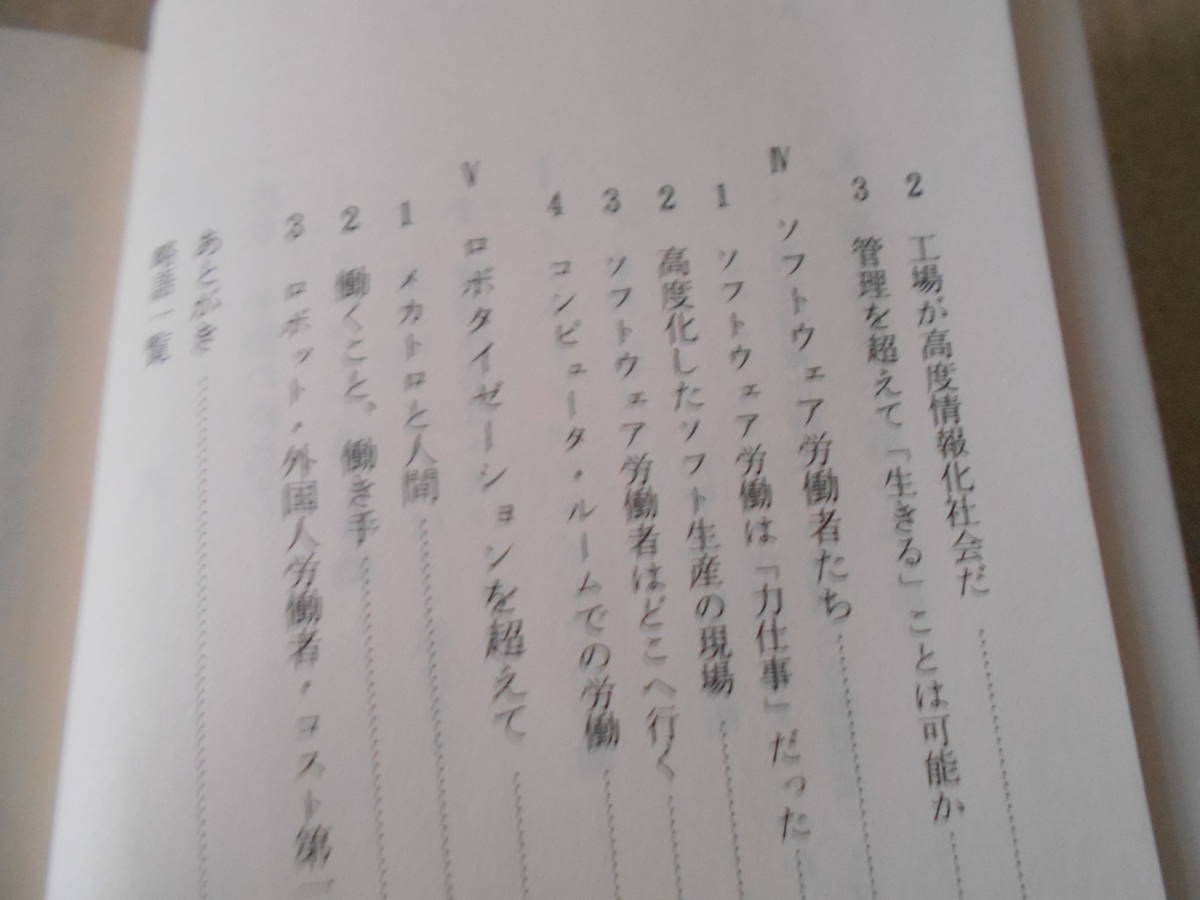 2 工場が高度情報化社会だ
3 管理を超えて「生きる」ことは可能か
Ⅳ ソフトウェア労働者たち
1 ソフトウェア労働は「力仕事」だった
2 高度化したソフト生産の現場
3 ソフトウェア労働者はどこへ行く
4 コンピュータ・ルームでの労働
Ⅴ ロボタイゼーションを超えて
1 メカトロと人間
2 働くこと、働き手
3 ロボット・外国人労働者・コスト第一
あとがき
略語一覧